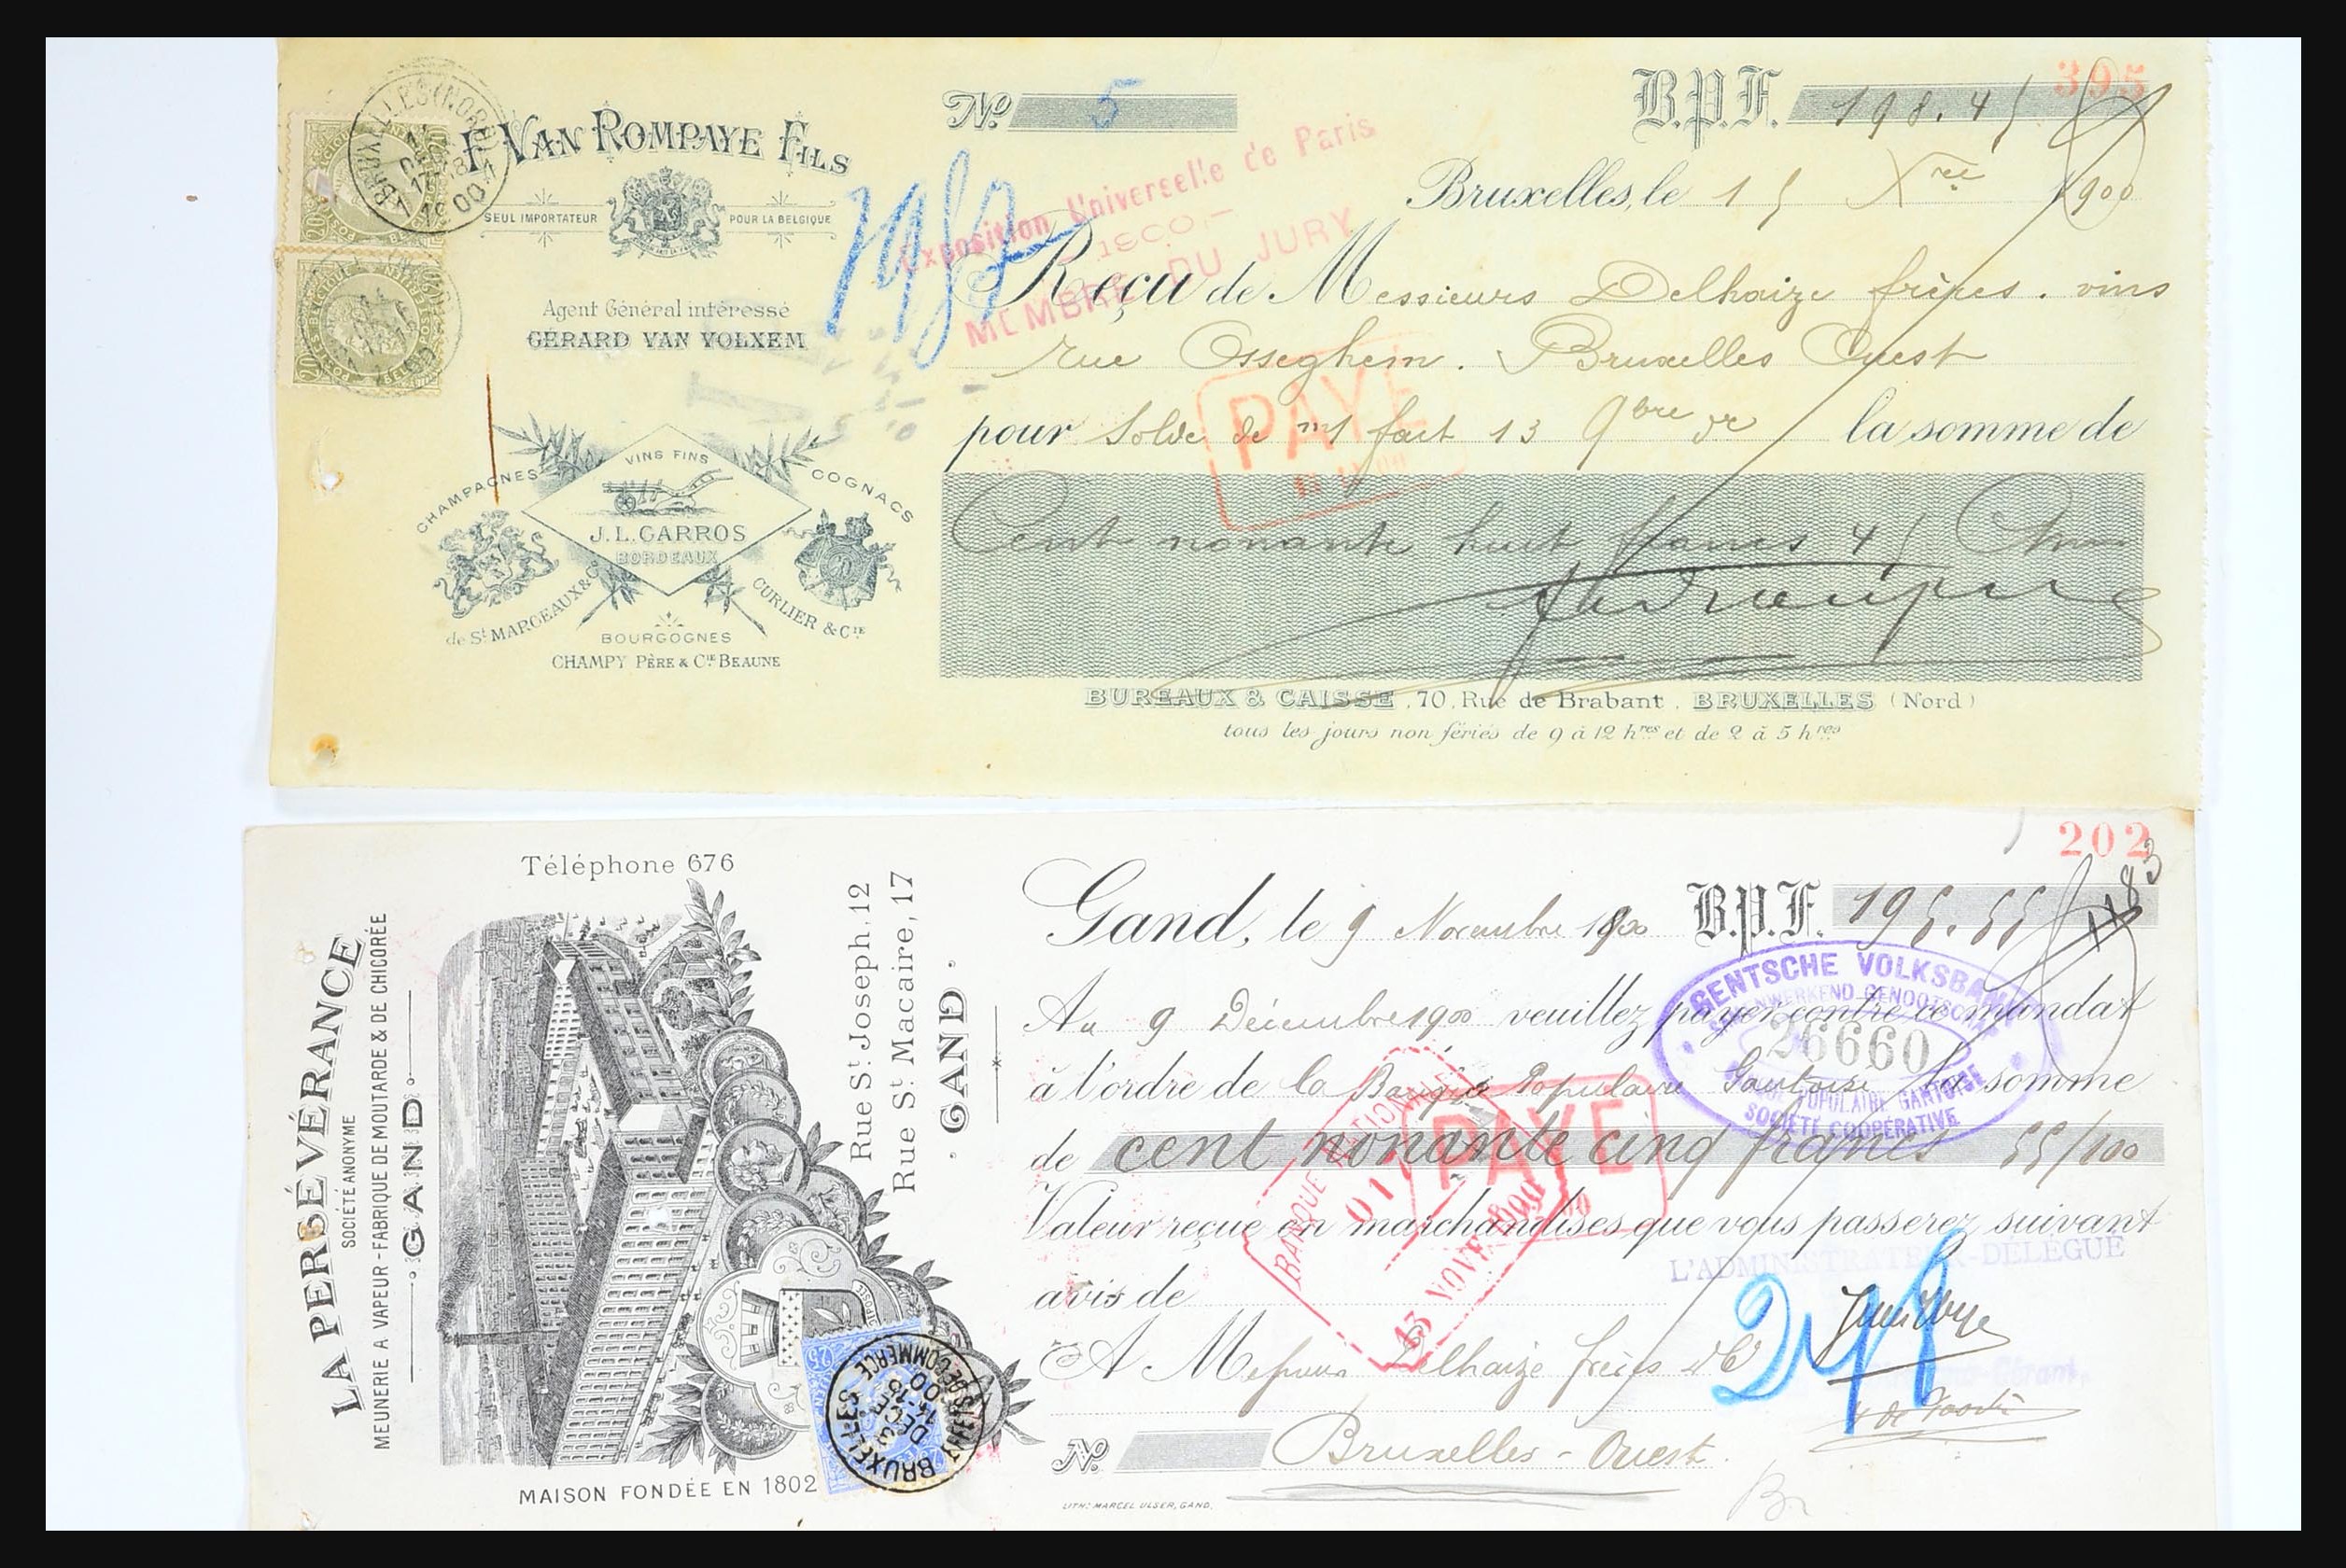 395
Nº 5
B.P.F. 198.45
F. VAN ROMPAYE FILS
SEUL IMPORTATEUR POUR LA BELGIQUE
Exposition Universelle de Paris
1900
MEMBRE DU JURY
Bruxelles, le 15 Xbre 1900
Agent Général intéressé
GÉRARD VAN VOLXEM
Reçu de Messieurs Delhaize frères. vins
rue Osseghem. Bruxelles Ouest
PAYÉ
pour Solde de m/ fact 13 9bre la somme de
Cent nonante huit francs 45
CHAMPAGNES
VINS FINS
COGNACS
J.L. GARROS
BORDEAUX
de St MARCEAUX & Cie
CURLIER & Cie
BOURGOGNES
CHAMPY PÈRE & Cie BEAUNE
BUREAUX & CAISSE, 70, Rue de Brabant, BRUXELLES (Nord)
tous les jours non fériés de 9 à 12 hres et de 2 à 5 hres
202
Téléphone 676
LA PERSÉVÉRANCE
SOCIÉTÉ ANONYME
MEUNERIE A VAPEUR - FABRIQUE DE MOUTARDE & DE CHICORÉE
GAND
Rue St. Joseph, 12
Rue St. Macaire, 17
GAND
MAISON FONDÉE EN 1802
Gand, le 9 Novembre 1900 B.P.F. 195.55
Au 9 Décembre 1900 veuillez payer contre ce mandat
à l'ordre de la Banque Populaire Gantoise la somme
de cent nonante cinq francs 55/100
Valeur reçue en marchandises que vous passerez suivant
avis de
A Messieurs Delhaize frères & Cie
Nº Bruxelles - Ouest.
GENTSCHE VOLKSBANK
SAMENWERKEND GENOOTSCHAP
26660
BANQUE POPULAIRE GANTOISE
SOCIÉTÉ COOPÉRATIVE
PAYÉ
BANQUE NATIONALE
13 NOVE 1900
L'ADMINISTRATEUR-DÉLÉGUÉ
LITH: MARCEL ULSER, GAND.
BRUXELLES
3 DECE
15-16
00